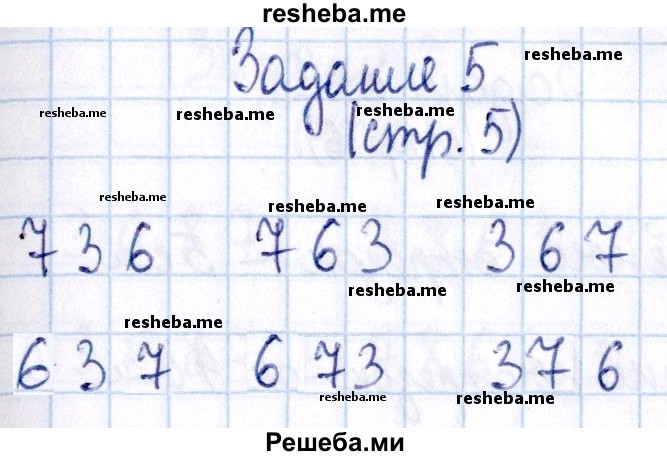 resheba.me
Задание 5
resheba.me
resheba.me resheba.me resheba.me
(стр. 5)
resheba.me resheba.me resheba.me
7 3 6 7 6 3 3 6 7
resheba.me resheba.me
resheba.me
6 3 7 6 7 3 3 7 6
resheba.me resheba.me
Решеба.ми